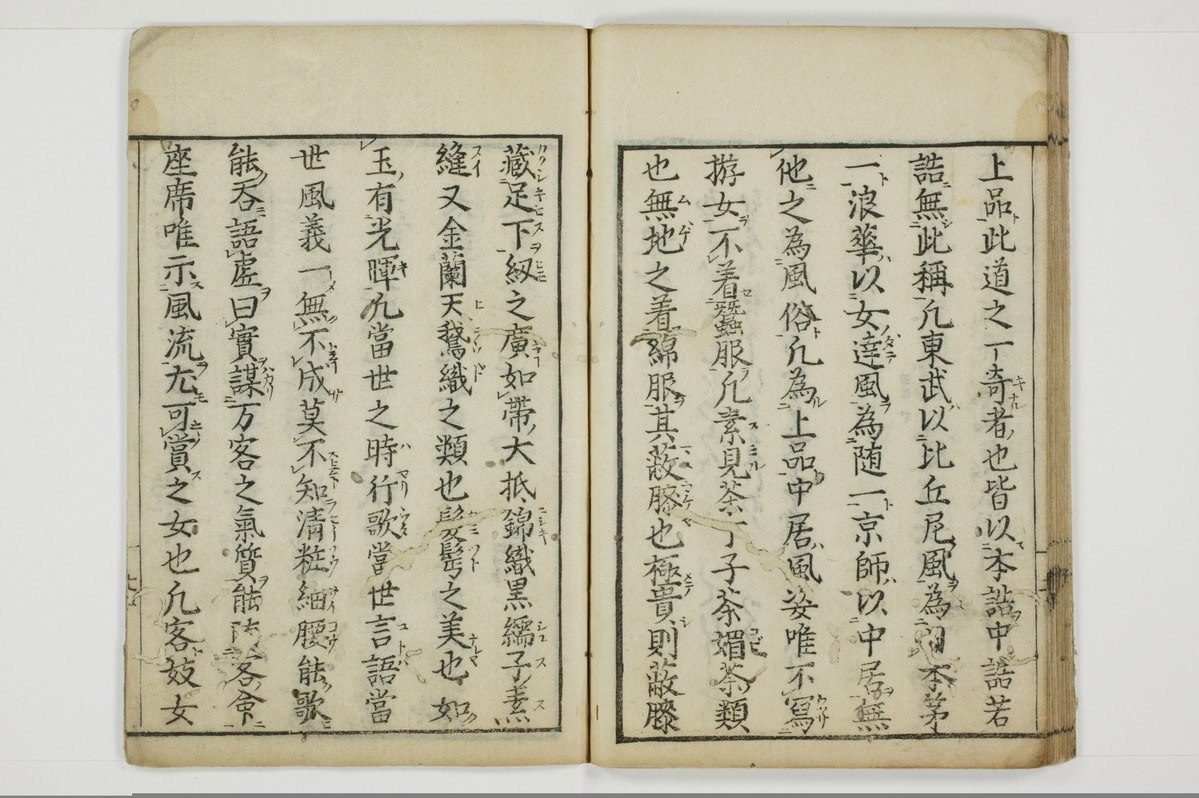 上品此道之一奇者也皆以本詰中詰若
詰無此稱凢東武以比丘尼風為日本茅
一浪華以女達風為随一京師以中居無
他之為風俗凢為上品中居風姿唯不寫
遊女不着蠶服凢素見茶丁子茶媚茶類
也無地之着綿服其蔽膝也極貴則蔽膝
蔵足下紉之廣如帶大抵錦織黒繻子素
縫又金蘭天鵞織之類也髪髩之美也如
玉有光暉凢當世之時行歌當世言語當
世風義一無不成莫不知清粧細腰能歌
能呑語虚曰實謀万客之氣質能 客會
座席唯示風流尢可賞之女也凢客妓女